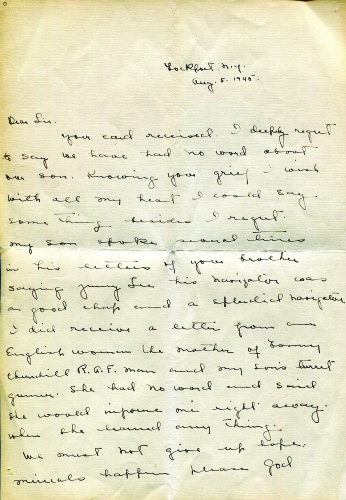 Lockport. N.Y.
Aug. 8. 1945.
Dear Sir.
Your card received. I deeply regret
to say we have had no word about
our son. Knowing your grief I wish
with all my heart I could say
something besides I regret.
my son spoke several times
in his letters of your brother
saying Jimmy Lee his navigator was
a good chap and a splendid navigator
I did receive a letter from an
English woman the mother of Tommy
Churchill R.A.F. man and my sons turret
gunner. She had no word and said
she would inform me right away.
when she learned any thing.
We must not give up hope.
miracals happen please God